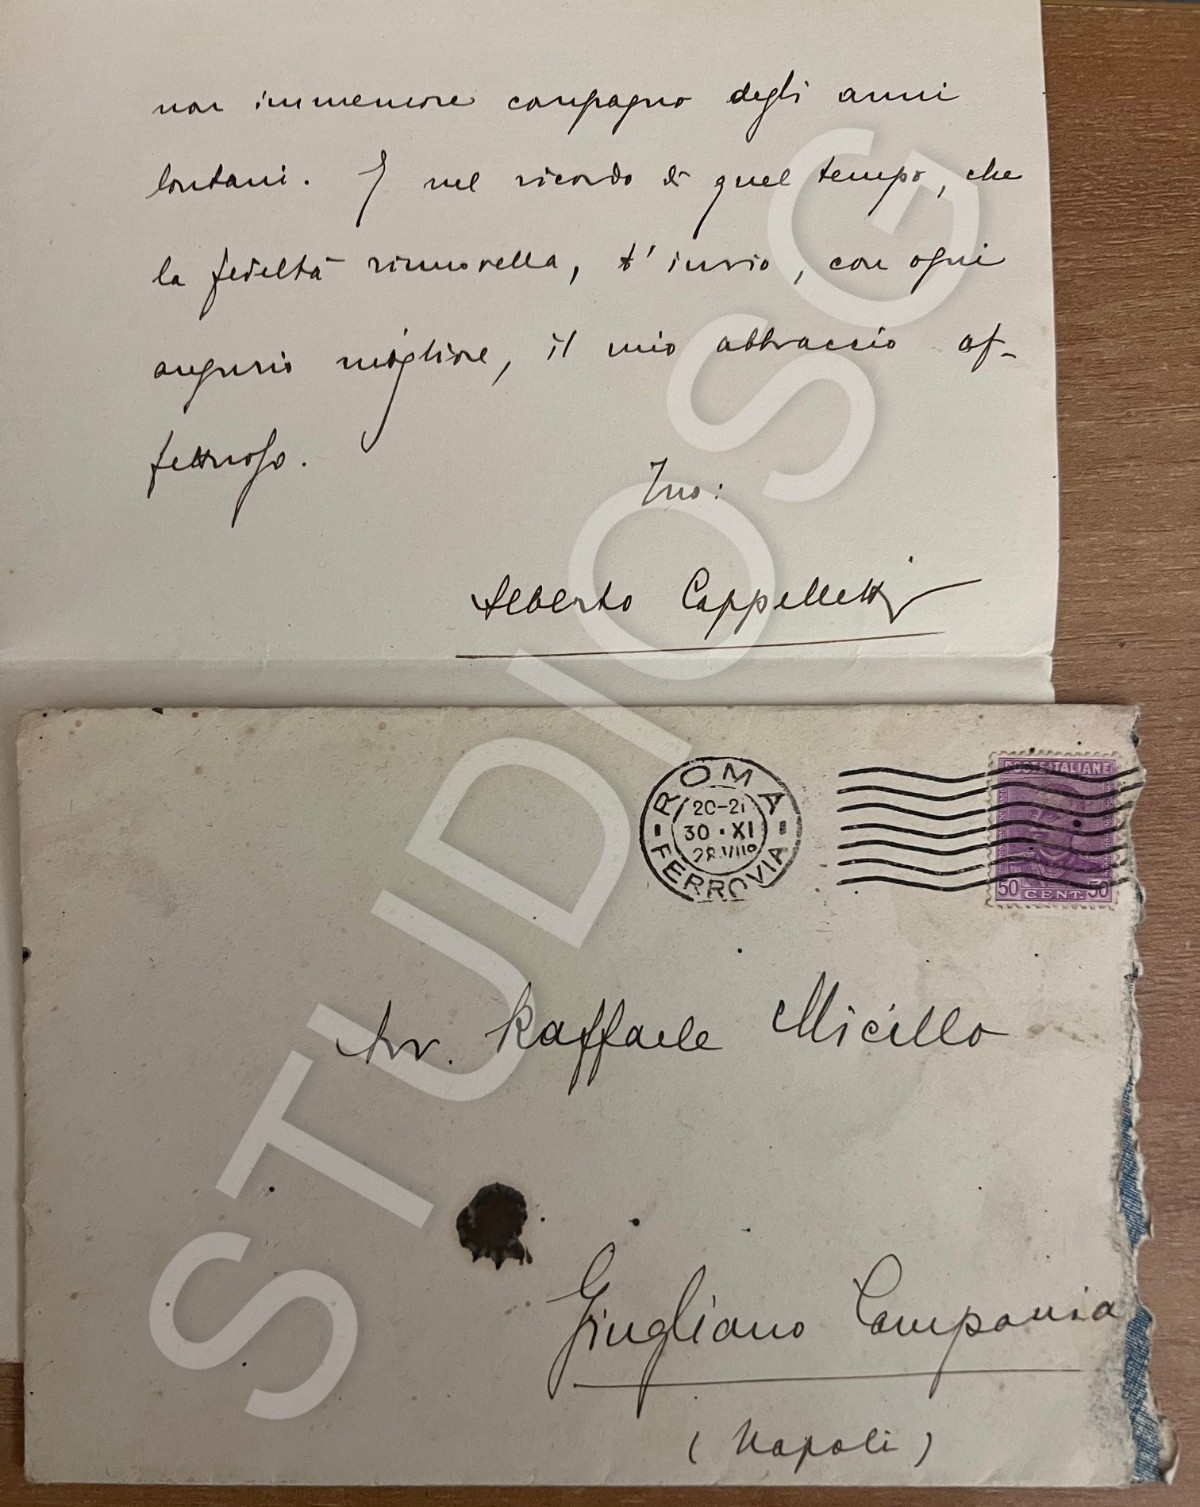 non immemore compagno degli anni
lontani. E nel ricordo di quel tempo, che
la fedeltà rinnovella, t'invio, con ogni
augurio migliore, il mio abbraccio af-
fettuoso.
Tuo:
Alberto Cappelletti
ROMA
20-21
30·XI
28 VIIº
FERROVIA
POSTE ITALIANE
50 CENT. 50
Avv. Raffaele Micillo
Giugliano Campania
(Napoli)
STUDIOSG